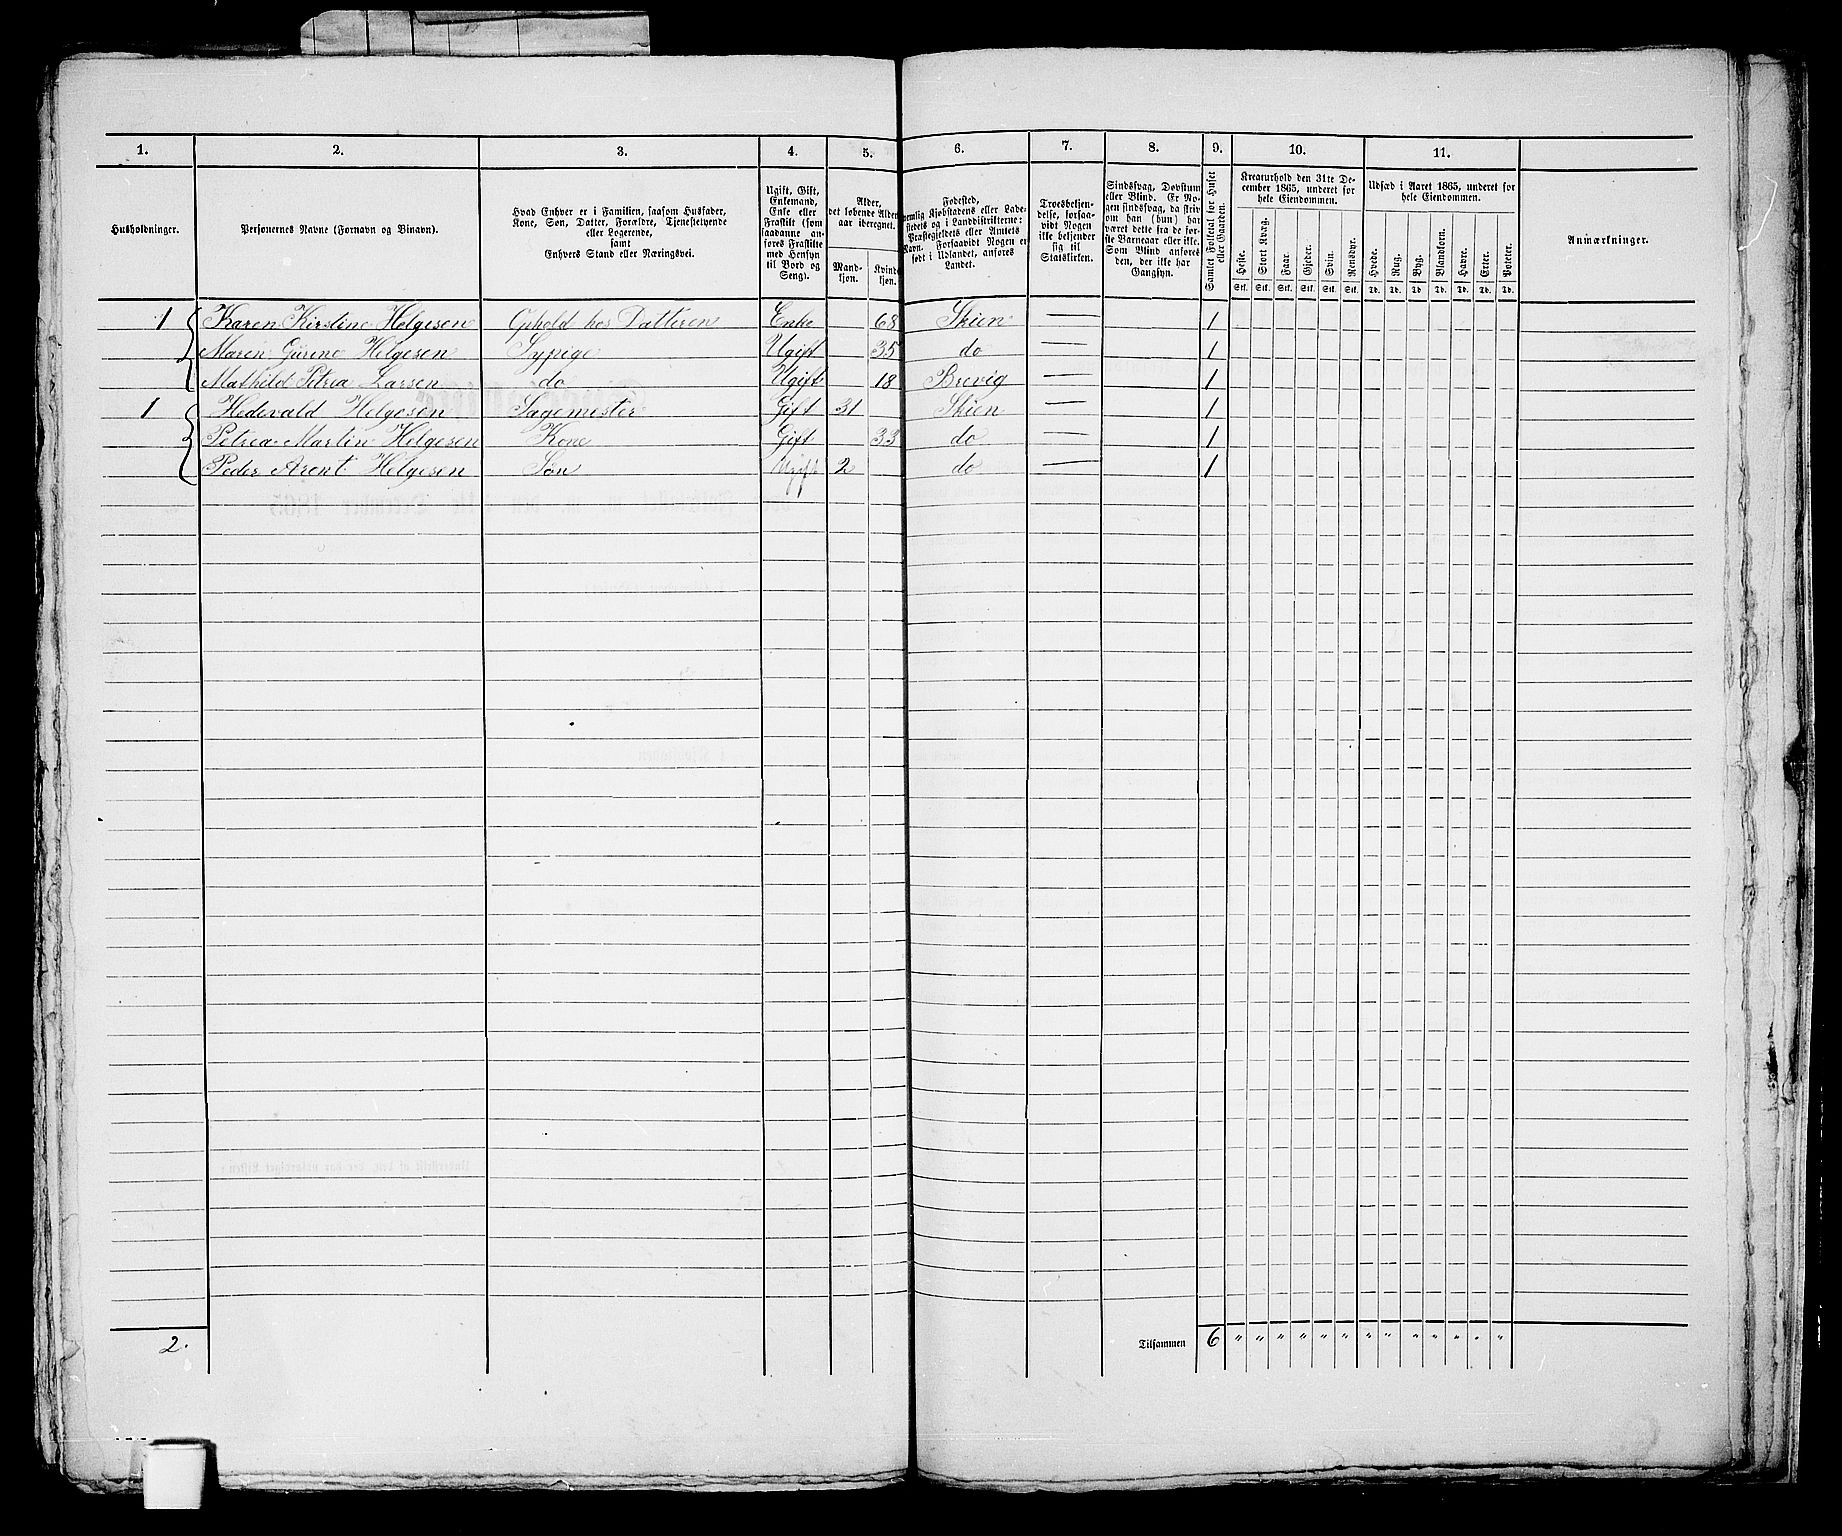 1. 2. 3. 4. 5. 6. 7. 8. 9. 10. 11.
Husholdninger.
Personernes Navne (Fornavn og Binavn).
Hvad Enhver er i Familien, saasom Husfader,
Kone, Søn, Datter, Forældre, Tjenestetyende
eller Logerende,
samt
Enhvers Stand eller Næringsvei.
Ugift, Gift,
Enkemand,
Enke eller
Fraskilt (som
saadanne an-
føres Fraskilte
med Hensyn
til Bord og
Seng).
Alder,
det løbende Alders-
aar iberegnet.
Mand-
kjøn.
Kvind-
kjøn.
Fødested,
nemlig Kjøbstadens eller Lade-
stedets og i Landdistrikterne:
Præstegjeldets eller Amtets
Navn. Forsaavidt Nogen er
født i Udlandet, anføres
Landet.
Troesbekjen-
delse, forsaa-
vidt Nogen
ikke bekjender
sig til
Statskirken.
Sindssvag, Døvstum
eller Blind. Er No-
gen sindssvag, da skriv
om han (hun) har
været dette fra de før-
ste Barneaar eller ikke.
Som Blind anføres
den, der ikke har
Gangsyn.
Samlet Folketal for Huset
eller Gaarden.
Kreaturhold den 31te De-
cember 1865, underet for
hele Eiendommen.
Heste. Stort Kvæg. Faar. Gjeder. Svin. Rensdyr.
Stk. Stk. Stk. Stk. Stk. Stk.
Udsæd i Aaret 1865, underet for
hele Eiendommen.
Hvede. Rug. Byg. Blandkorn. Havre. Erter. Poteter.
Td. Td. Td. Td. Td. Td. Td.
Anmærkninger.
1 Karen Kirstine Helgesen Ophold hos Datteren Enke 68 Skien — 1
Maren Gurine Helgesen Sypige Ugift 35 do — 1
Mathild Petrea Larsen do Ugift 18 Brevig — 1
1 Hedevald Helgesen Sagemester Gift 31 Skien — 1
Petrea Martin Helgesen Kone Gift 33 do — 1
Peder Arent Helgesen Søn Ugift 2 do — 1
2. Tilsammen 6 " " " " " " " " " " " " "